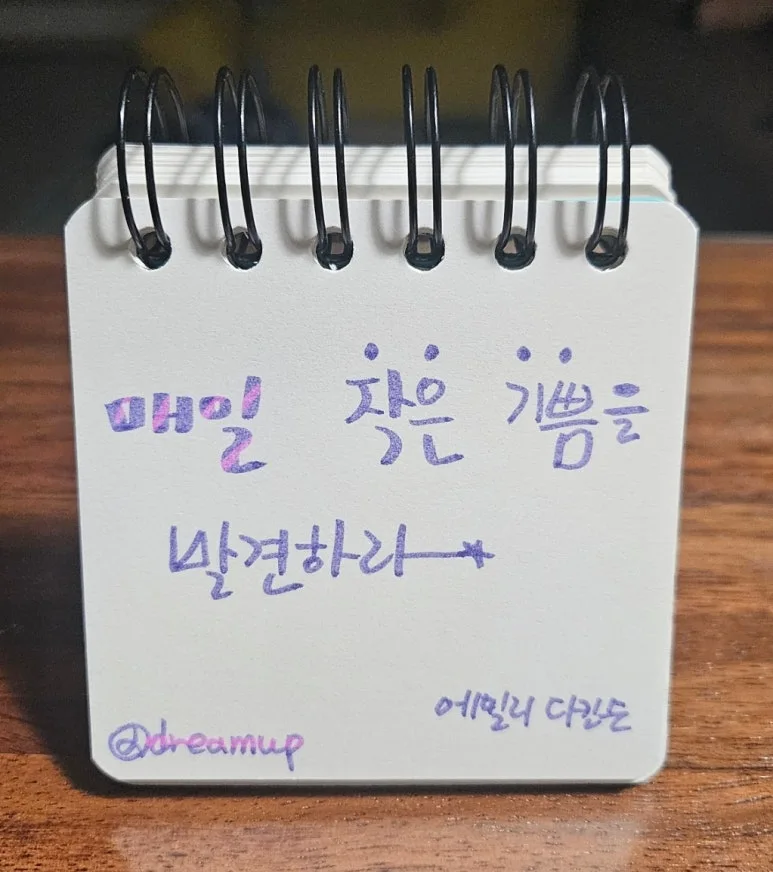 매일 작은 기쁨을
발견하라
에밀리 디킨슨
@dreamup